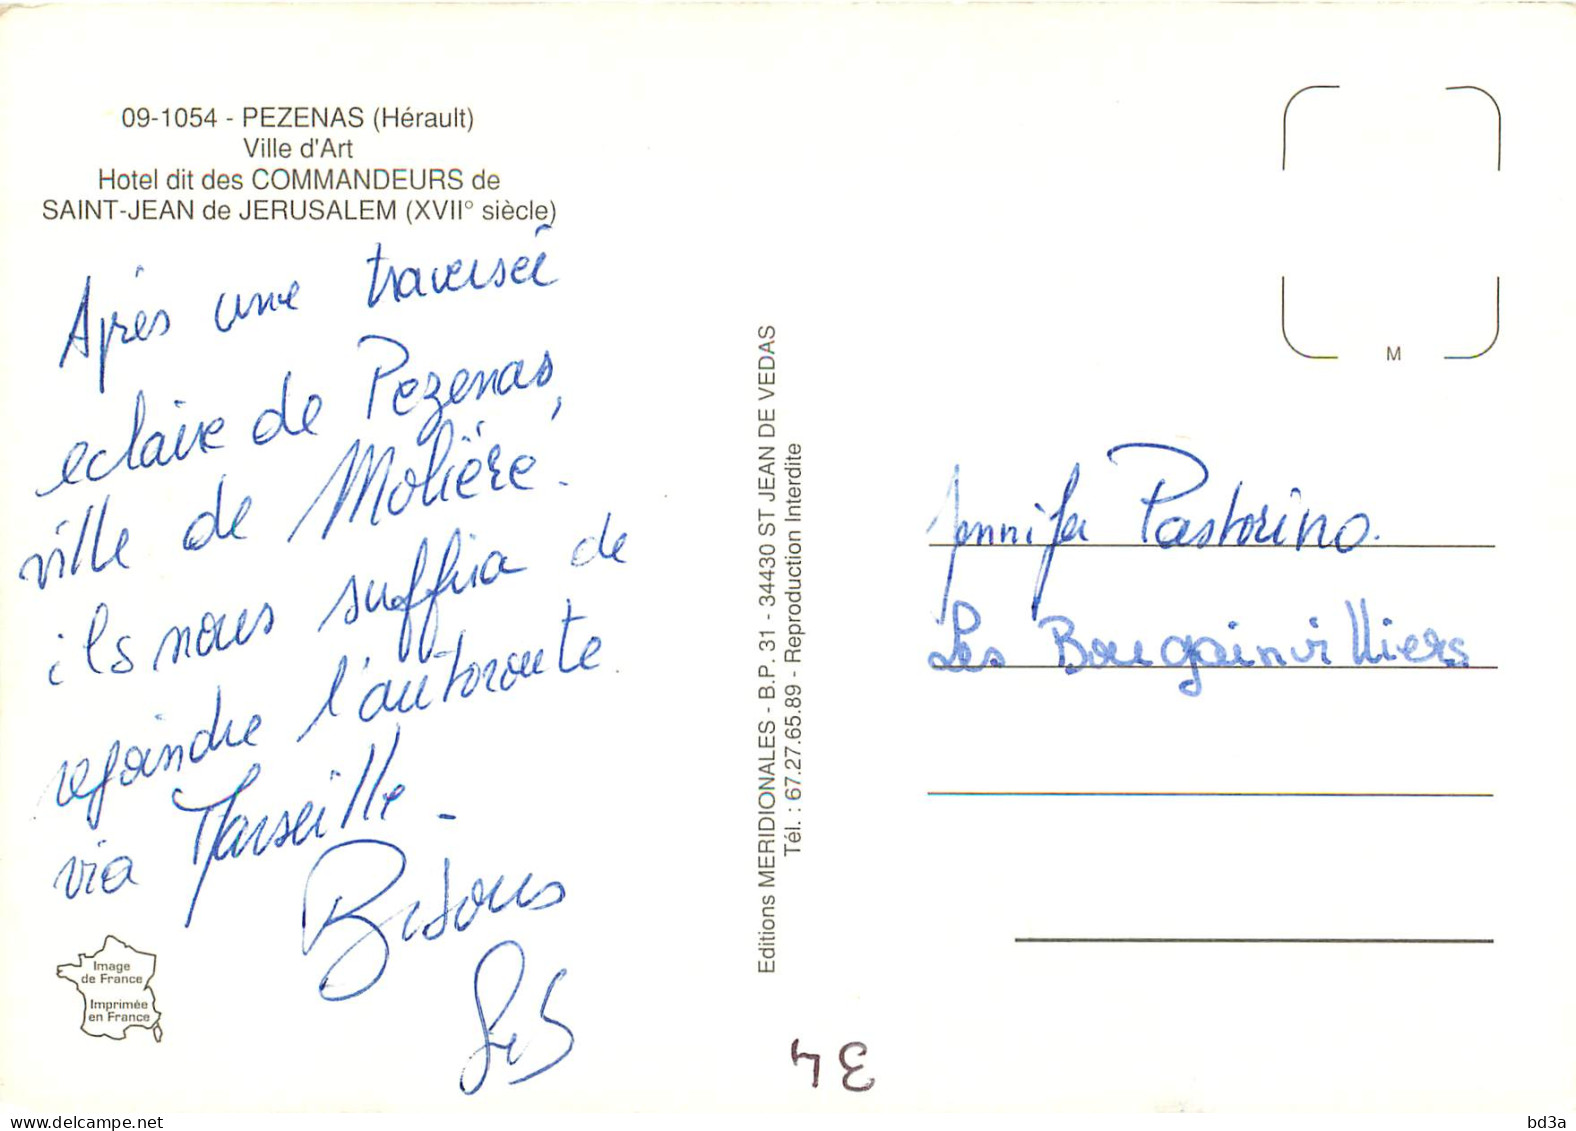 09-1054 - PEZENAS (Hérault)
Ville d'Art
Hotel dit des COMMANDEURS de
SAINT-JEAN de JERUSALEM (XVII° siècle)
Après une traversée
eclaire de Pezenas,
ville de Molière.
ils nous suffira de
rejoindre l'autoroute
via Marseille -
Bisous
Image
de France
Imprimée
en France
Editions MERIDIONALES - B.P. 31 - 34430 ST JEAN DE VEDAS
Tél. : 67.27.65.89 - Reproduction Interdite
M
Jennifer Pastorino.
Les Bougainvilliers
34
delcampe.net
bd3a